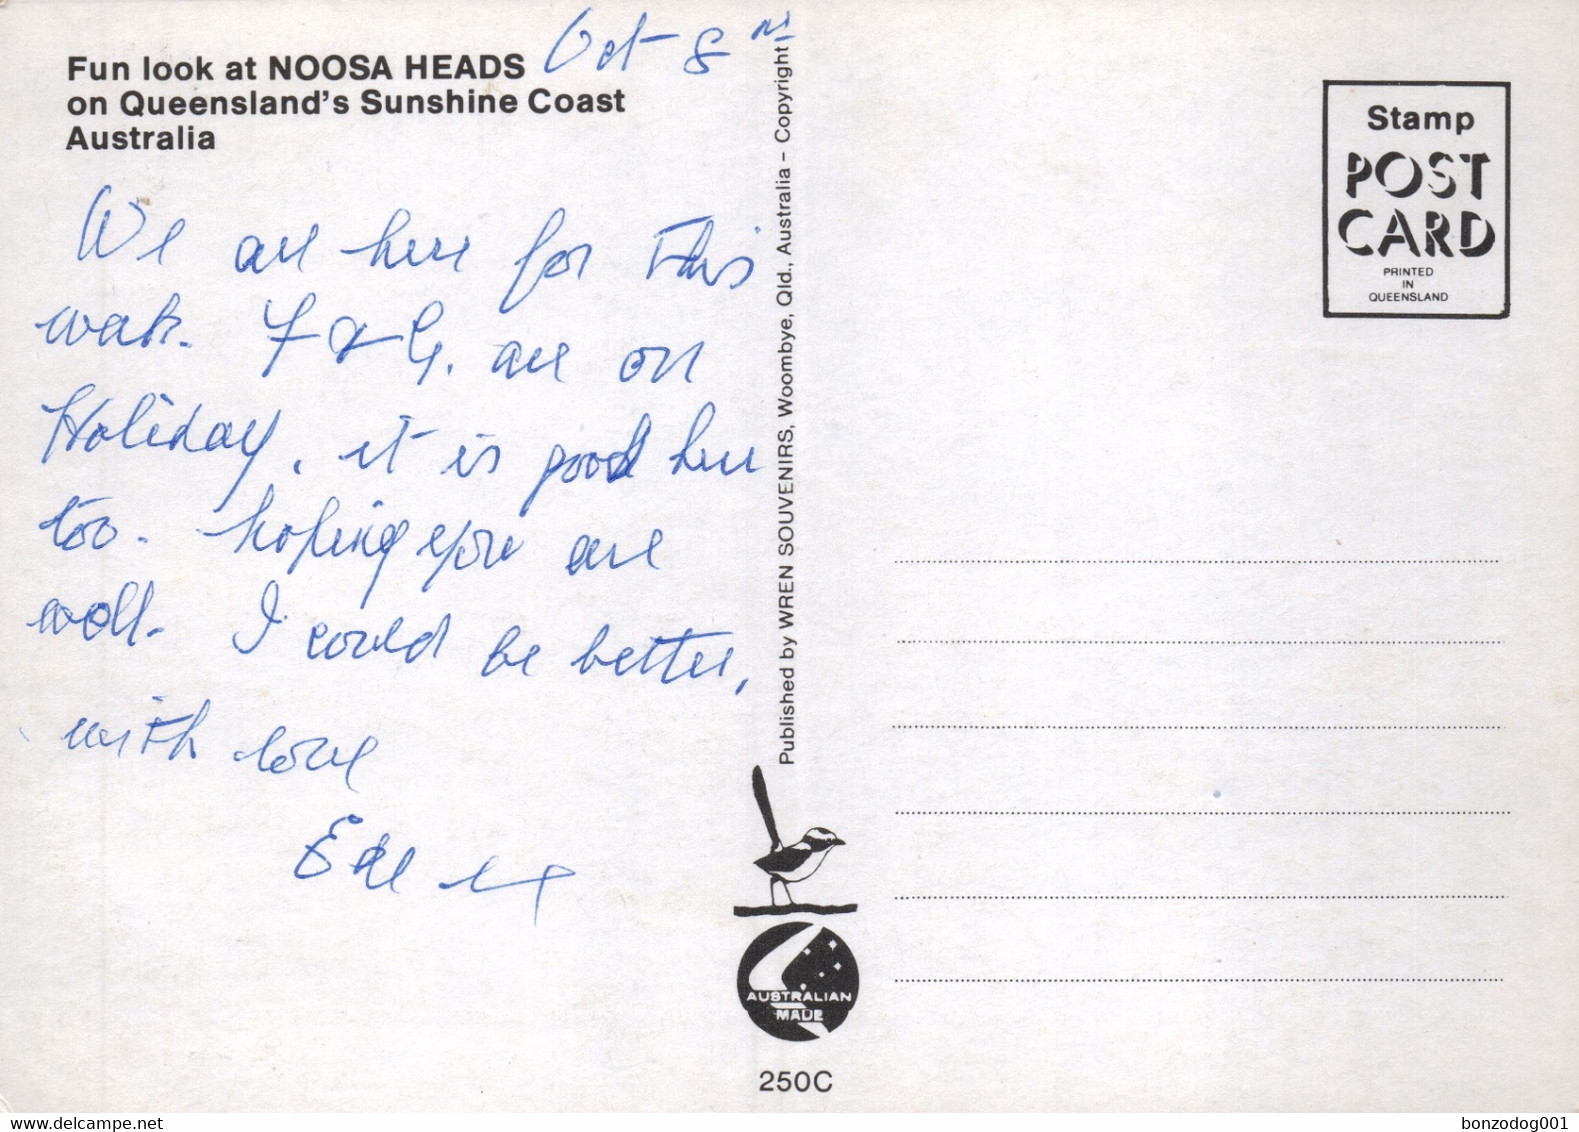 Fun look at NOOSA HEADS
on Queensland's Sunshine Coast
Australia
Oct 8
We are here for this
week. F & G. are on
Holiday, it is good here
too. hoping you are
well. I could be better,
with love
Published by WREN SOUVENIRS, Woombye, Qld., Australia – Copyright
AUSTRALIAN
MADE
250C
Stamp
POST
CARD
PRINTED
IN
QUEENSLAND
delcampe.net
bonzodog001